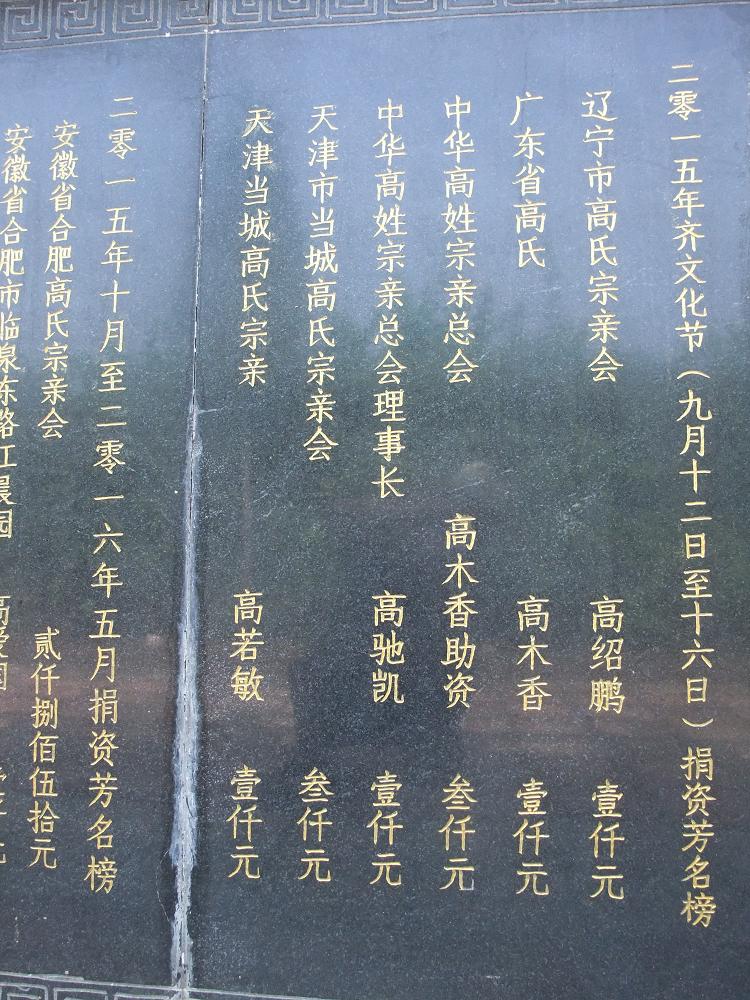 二零一五年齐文化节（九月十二日至十六日）捐资芳名榜
辽宁市高氏宗亲会 高绍鹏 壹仟元
广东省高氏 高木香 壹仟元
中华高姓宗亲总会 高木香助资 叁仟元
中华高姓宗亲总会理事长 高驰凯 壹仟元
天津市当城高氏宗亲会 叁仟元
天津当城高氏宗亲 高若敏 壹仟元
二零一五年十月至二零一六年五月捐资芳名榜
安徽省合肥高氏宗亲会 贰仟捌佰伍拾元
安徽省合肥市临泉东路红晨园